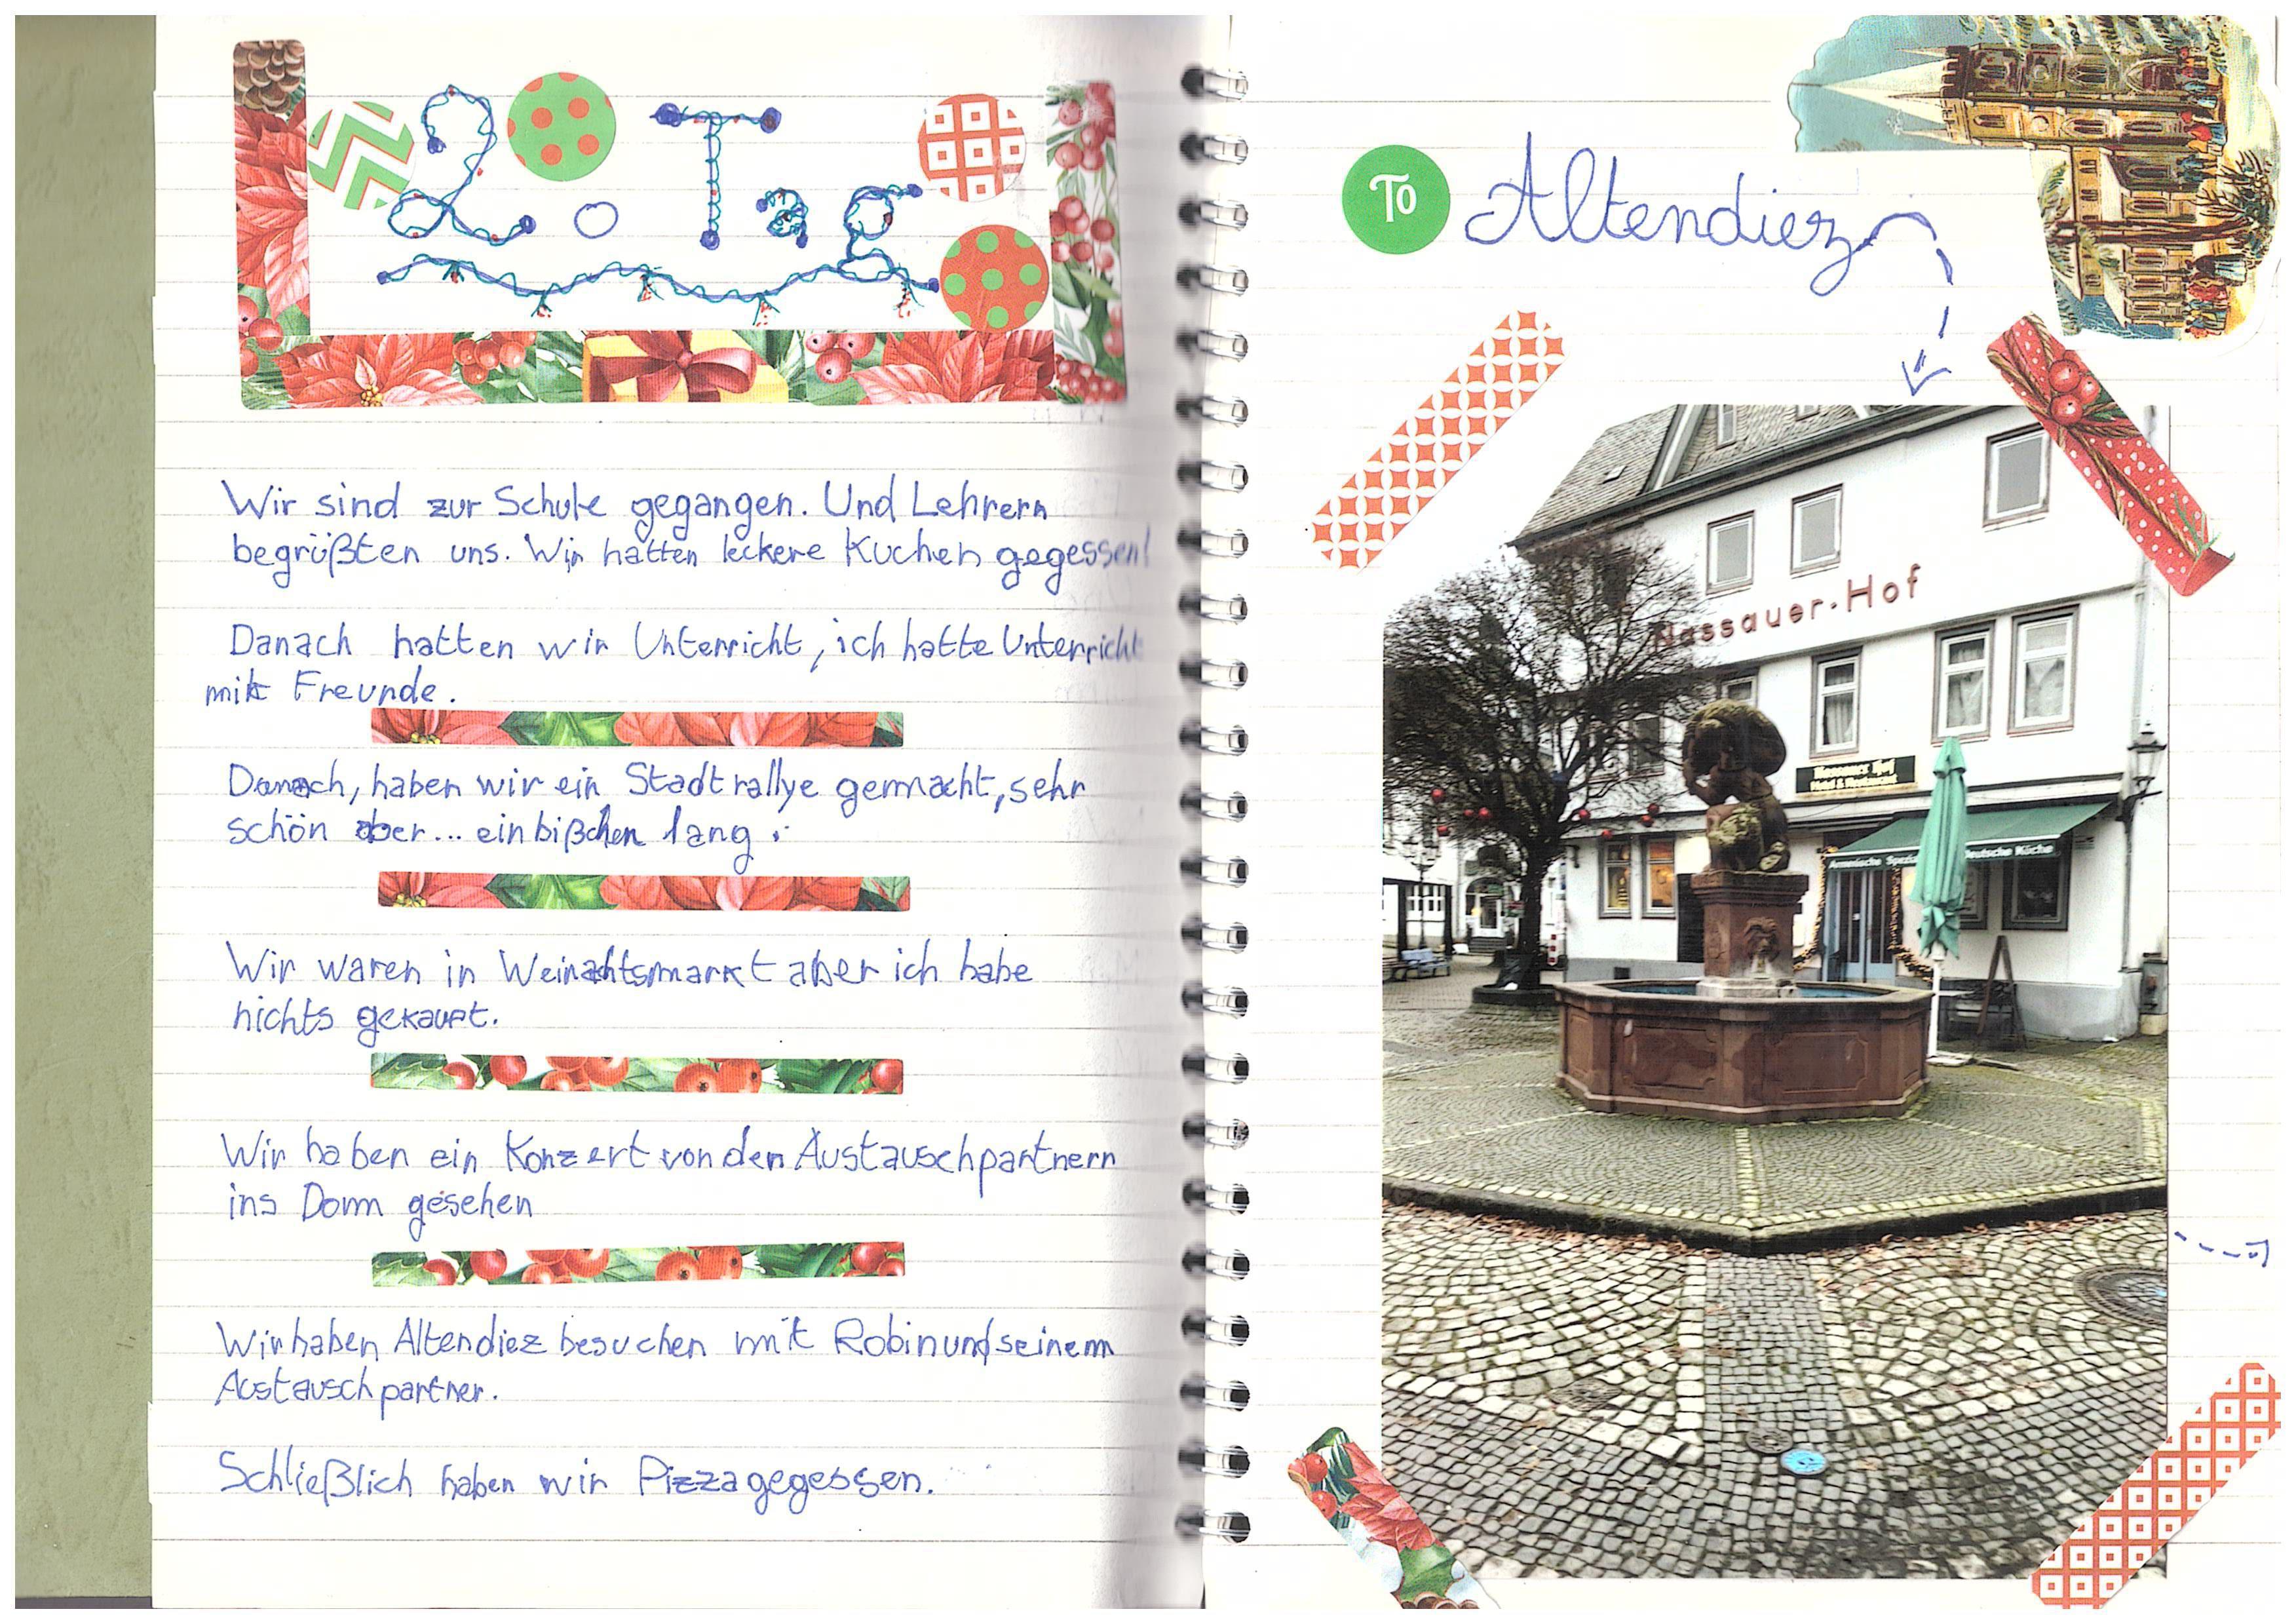 2. Tag
Wir sind zur Schule gegangen. Und Lehrern
begrüßten uns. Wir hatten leckere Kuchen gegessen!
Danach hatten wir Unterricht, ich hatte Unterricht
mit Freunde.
Danach, haben wir ein Stadtrallye gemacht, sehr
schön aber... ein bißchen lang.
Wir waren in Weinachtsmarkt aber ich habe
nichts gekauft.
Wir haben ein Konzert von den Austauschpartnern
ins Dom gesehen
Wir haben Altendiez besuchen mit Robin und seinem
Austauschpartner.
Schließlich haben wir Pizza gegessen.
To Altendiez
Nassauer-Hof
Nassauer Hof
Deutsche Küche